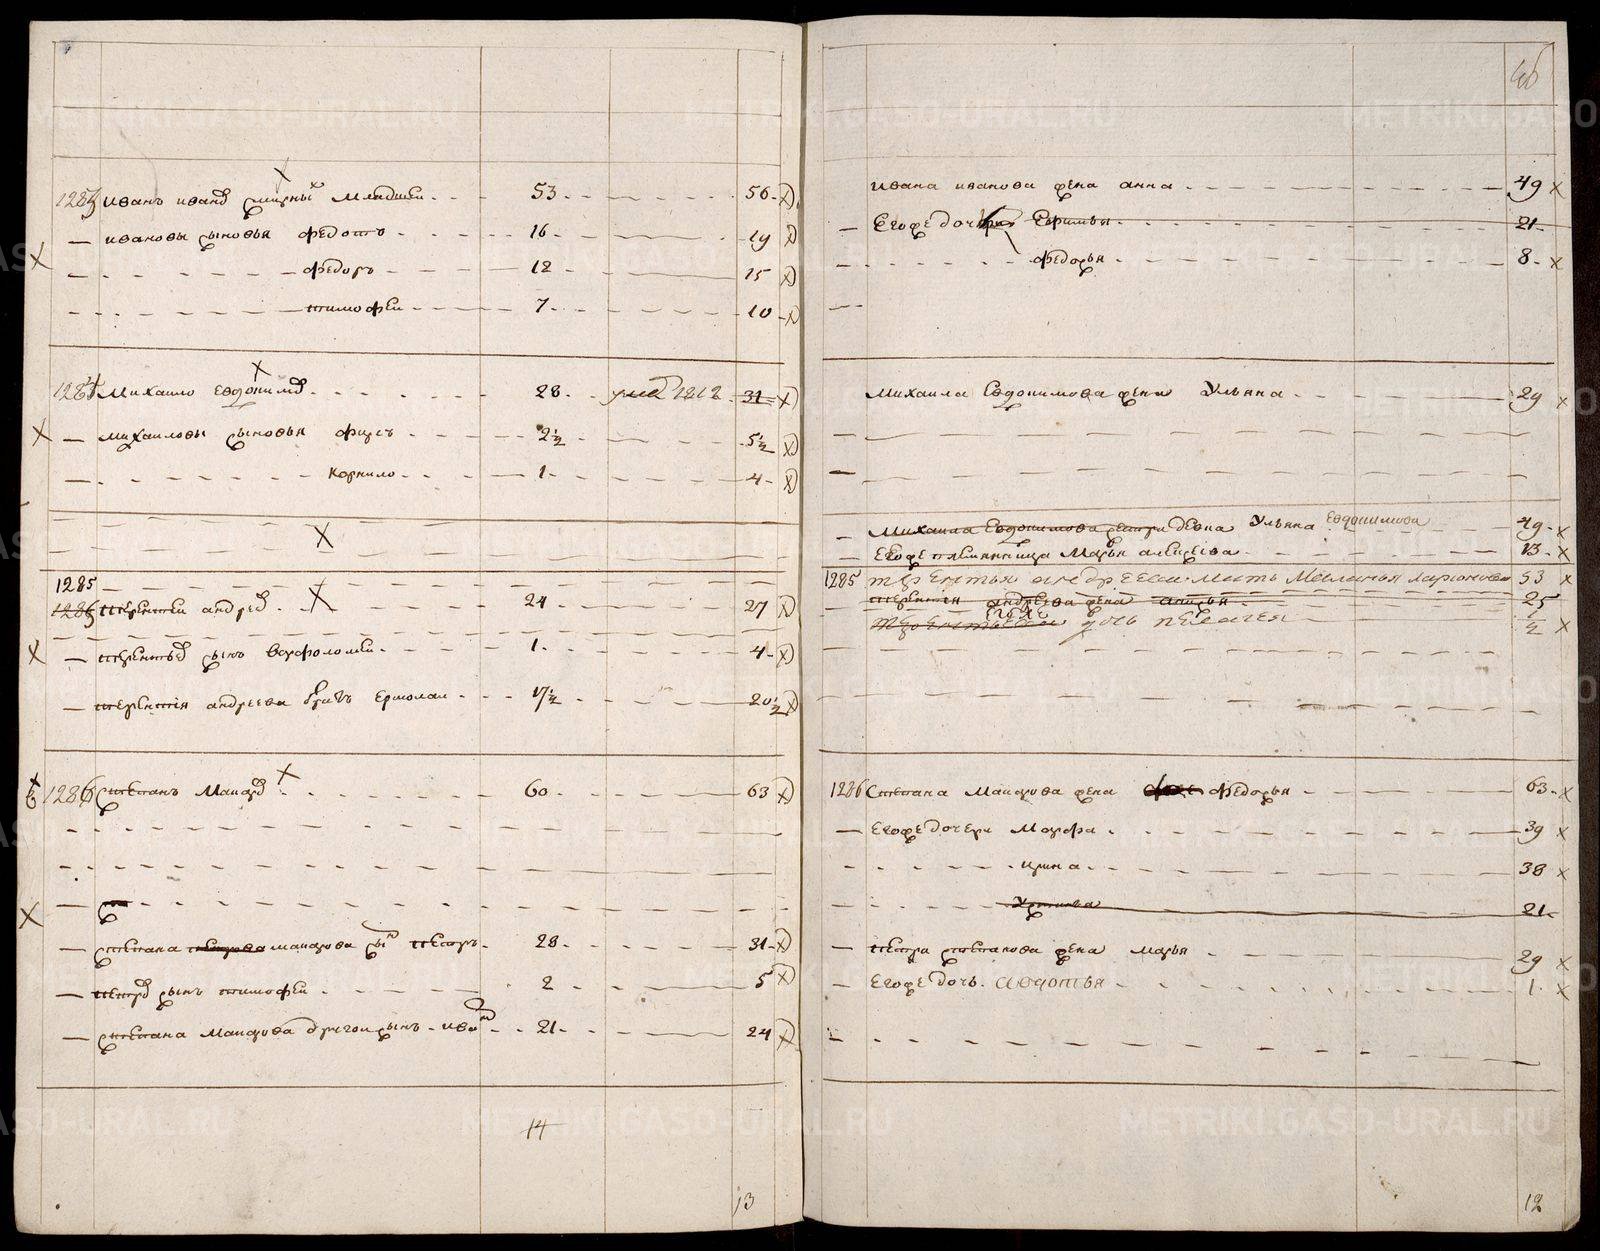 1283 иванъ иванов смирных младшеи 53 56
ивановы сыновья федотъ 16 19
федоръ 12 15
тимофеи 7 10
1284 Михаило Евдокимов 28 умре 1812 31
михаиловы сыновья фирсъ 2½ 5½
корнило 1 4
1285
1285 терентеи андреев 24 27
терентьев сынъ варфоломеи 1 4
терентія андреева братъ ермолаи 17½ 20½
1286 степанъ макаров 60 63
степана петрова макарова сын петръ 28 31
петров сынъ тимофеи 2 5
степана макарова другои сынъ иван 21 24
14
13
46
ивана иванова жена анна 49
Егоже дочери Ефимья 21
федорья 8
михаила Евдокимова жена Ульяна 29
Михаила Евдокимова сестра девка Ульяна Евдокимова 49
Егоже племянница Марья алексеева 13
1285 терентья андреева мать Маланья ларионова 53
терентія андреева жена 25
Терентьева Егоже дочь пелагея ½
1286 Степана Макарова жена федорья 63
Егоже дочери Марфа 39
ирина 38
Устинья 21
петра степанова жена марья 29
Егоже дочь авдотья 1
12
METRIKI.GASO-URAL.RU